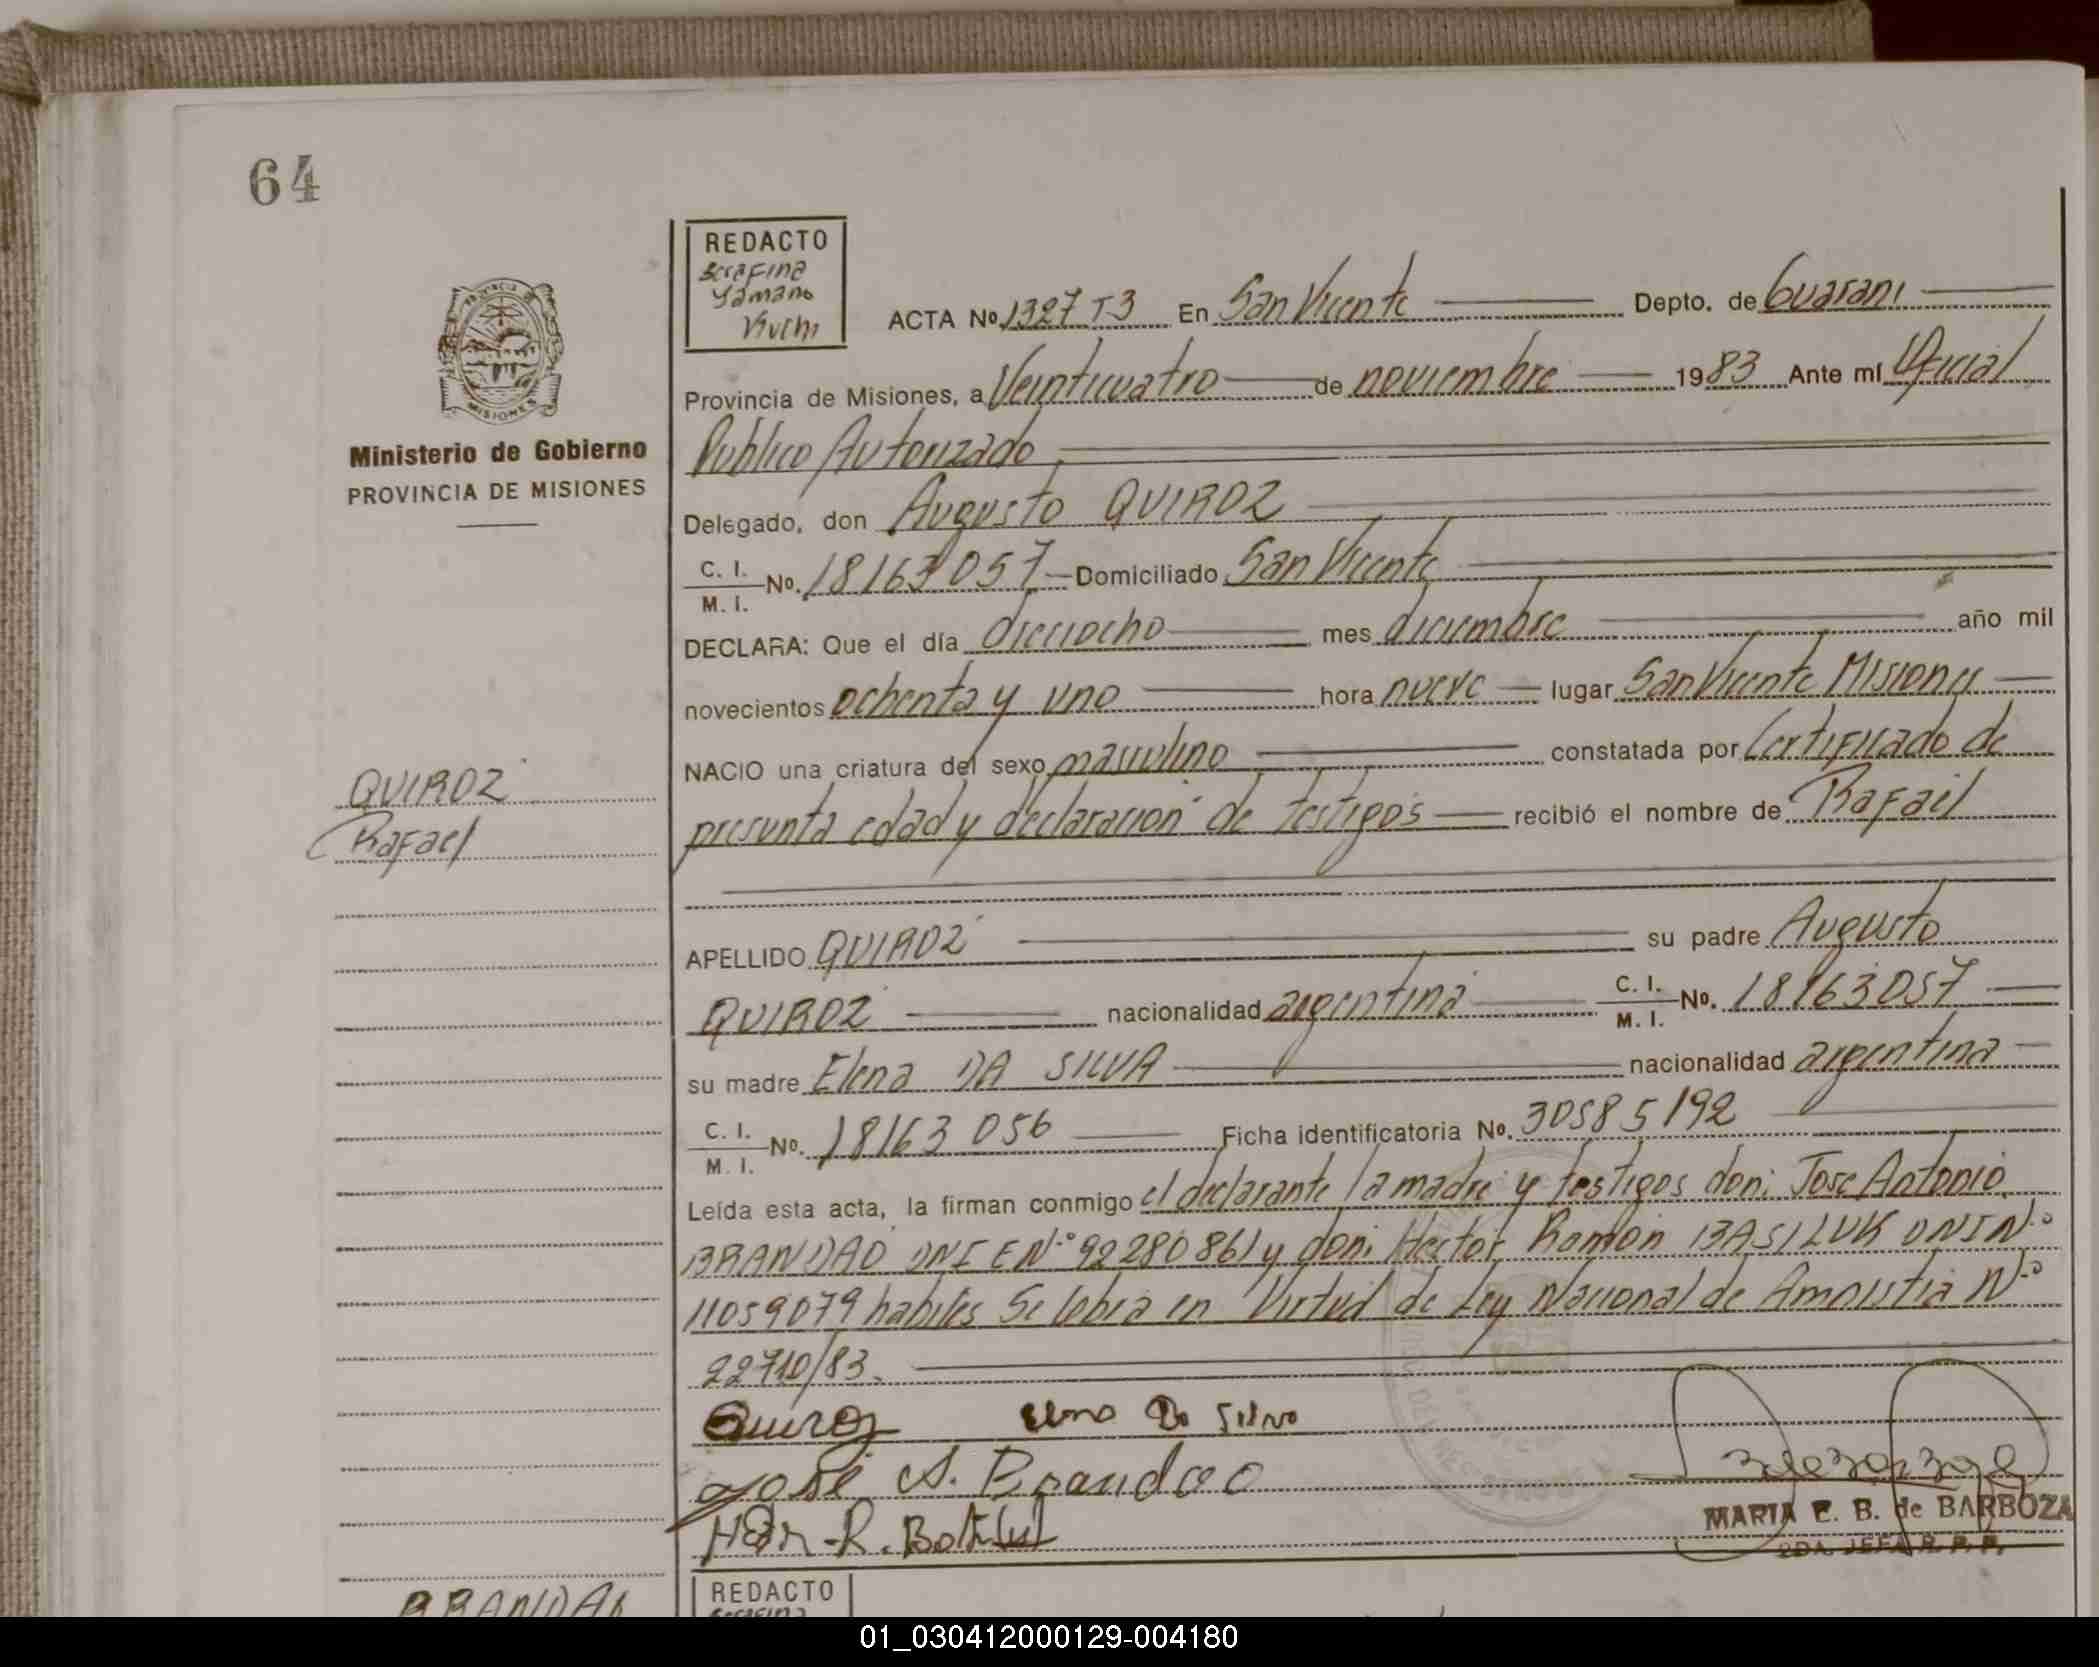 64
REDACTO
Serafina
Yamano
Kuchi
ACTA No. 1327 T3 En San Vicente Depto. de Guarani
PROVINCIA DE
MISIONES
Provincia de Misiones, a Veinticuatro de noviembre 1983 Ante mí Oficial
Ministerio de Gobierno
PROVINCIA DE MISIONES
Publico Autorizado
Delegado, don Augusto QUIROZ
C. I.
M. I. No. 18163057 Domiciliado San Vicente
DECLARA: Que el día dieciocho mes diciembre año mil
novecientos ochenta y uno hora nueve lugar San Vicente Misiones
NACIO una criatura del sexo masculino constatada por Certificado de
QUIROZ
Rafael
presunta edad y declaración de testigos recibió el nombre de Rafael
APELLIDO QUIROZ su padre Augusto
QUIROZ nacionalidad argentina C. I.
M. I. No. 18163057
su madre Elena DA SILVA nacionalidad argentina
C. I.
M. I. No. 18163 056 Ficha identificatoria No. 30585192
Leída esta acta, la firman conmigo el declarante la madre y testigos don: Jose Antonio
BRANDAO DNI E Nº 92280861 y don: Hector Ramón BASILUK DNI Nº
11059079 habiles Se labra en Virtud de Ley Nacional de Amnistia Nº
22710/83.
Quiroz Elena Da Silva
José A. Brandao
MARIA E. B. de BARBOZA
2DA. JEFA R. P. P.
BRANDAO
REDACTO
Serafina
01_030412000129-004180